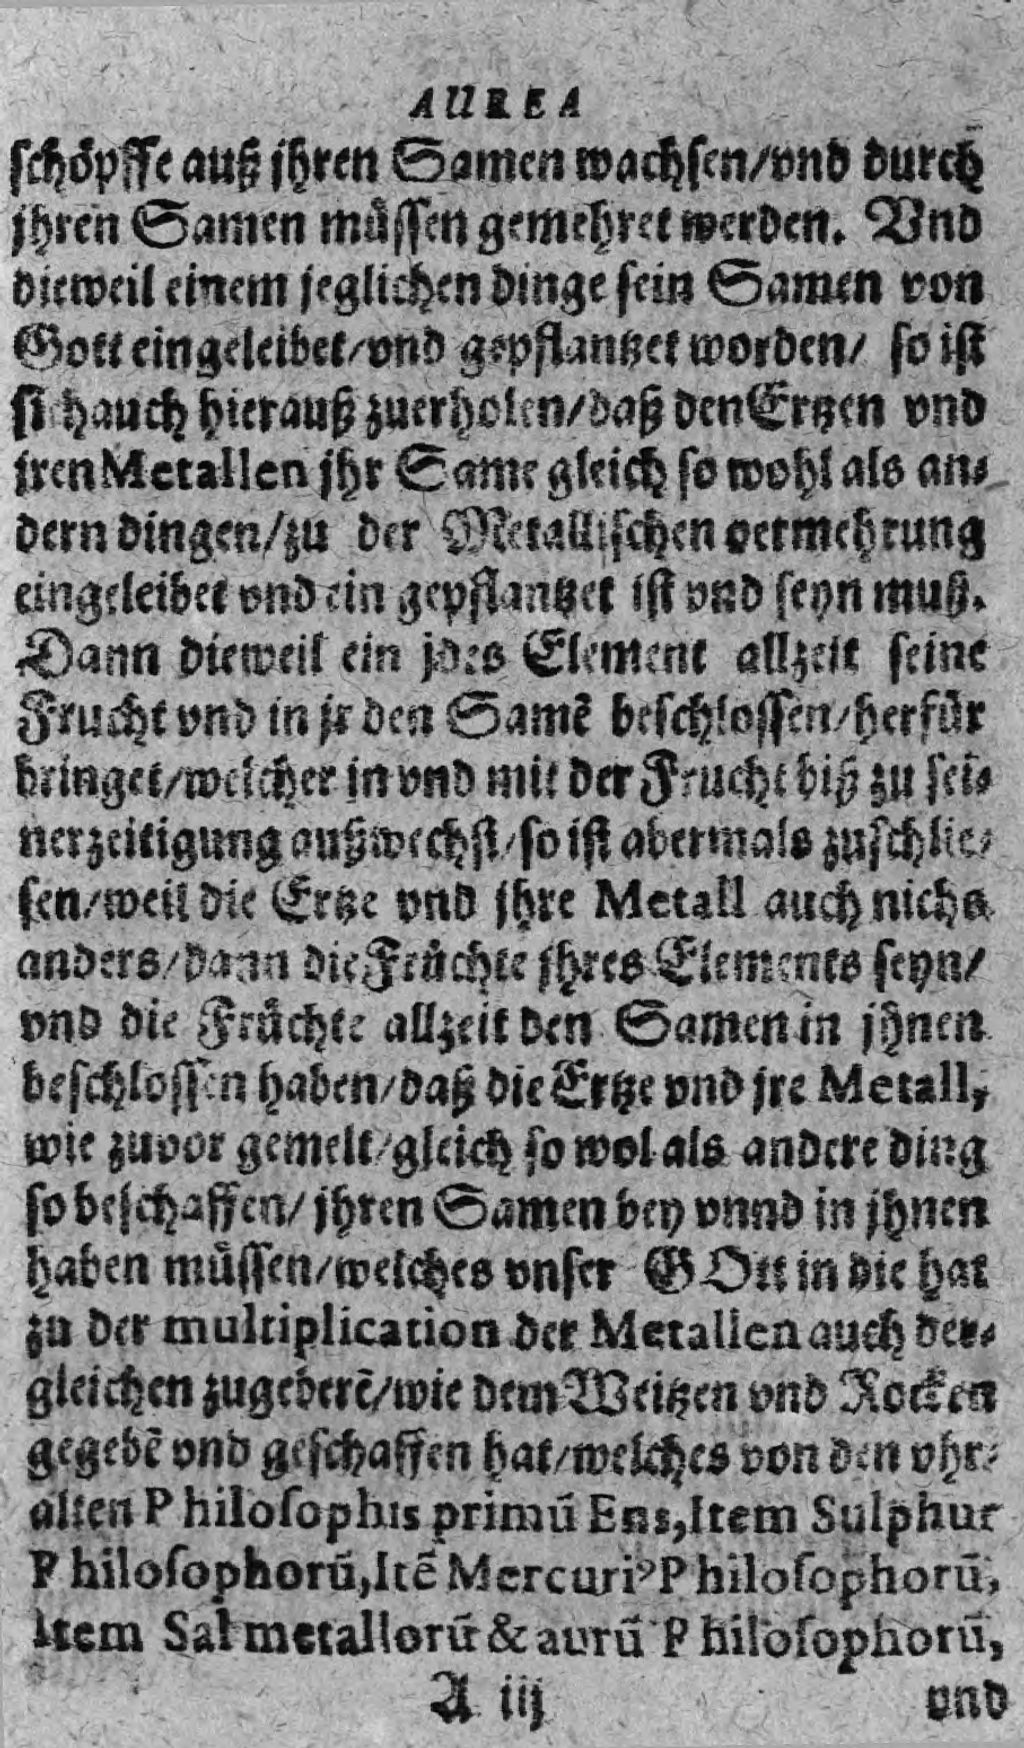 AUREA
schöpffe auß jhren Samen wachsen/vnd durch
jhren Samen müssen gemehret werden. Vnd
dieweil einem jeglichen dinge sein Samen von
Gott eingeleibet/vnd gepflantzet worden/ so ist
sich auch hierauß zuerholen/daß den Ertzen vnd
jren Metallen jhr Same gleich so wohl als an⸗
dern dingen/zu der Metallischen vermehrung
eingeleibet vnd ein gepflantzet ist vnd seyn muß.
Dann dieweil ein jdes Element allzeit seine
Frucht vnd in jr den Samẽ beschlossen/herfür
bringet/welcher in vnd mit der Frucht biß zu sei⸗
ner zeitigung außwechst/so ist abermals zuschlie⸗
sen/weil die Ertze vnd jhre Metall auch nichs
anders/dann die Früchte jhres Elements seyn/
vnd die Früchte allzeit den Samen in jhnen
beschlossen haben/daß die Ertze vnd jre Metall,
wie zuvor gemelt/gleich so wol als andere ding
so beschaffen/jhren Samen bey vnnd in jhnen
haben müssen/welches vnser GOtt in die hat
zu der multiplication der Metallen auch der⸗
gleichen zugeberẽ/wie dem Weitzen vnd Rocken
gegebẽ vnd geschaffen hat/welches von den vhr⸗
alten Philosophis primũ Ens, Item Sulphur
Philosophorũ, Itẽ Mercuriꝰ Philosophorũ,
Item Sal metallorũ & aurũ Philosophorũ,
A iij
vnd